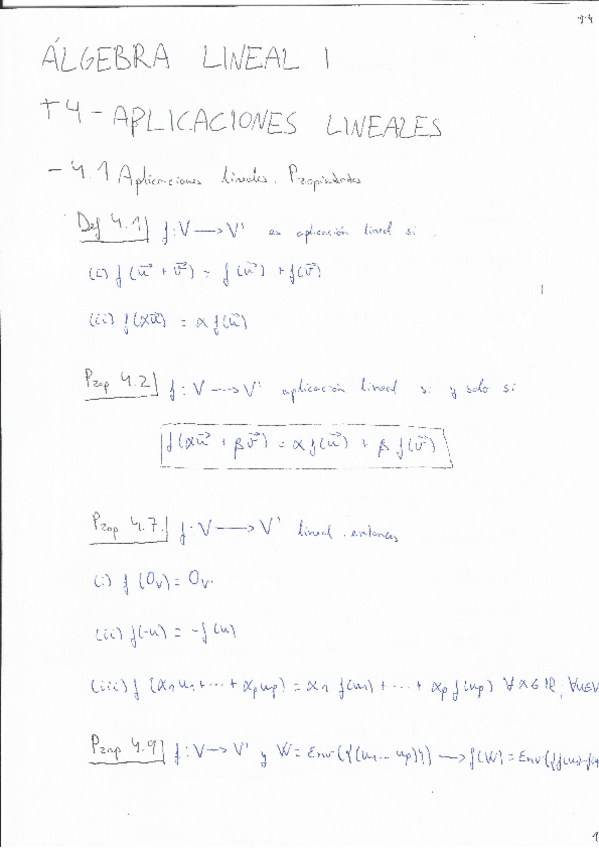 9.4
ÁLGEBRA LINEAL I
T4 - APLICACIONES LINEALES
- 4.1 Aplicaciones lineales. Propiedades
Def 4.1 f: V → V' es aplicación lineal si
(i) f(u⃗ + v⃗) = f(u⃗) + f(v⃗)
(ii) f(αu⃗) = α f(u⃗)
Prop 4.2 f: V → V' aplicación lineal si y solo si
f(αu⃗ + βv⃗) = α f(u⃗) + β f(v⃗)
Prop 4.7. f: V → V' lineal, entonces
(i) f(0_V) = 0_V'
(ii) f(-u) = -f(u)
(iii) f(α₁u₁ + ... + αₚuₚ) = α₁ f(u₁) + ... + αₚ f(uₚ) ∀α ∈ ℝ, ∀u∈V
Prop 4.9 f: V → V' y W = Env({(u₁... uₚ)}) → f(W) = Env({f(u₁)...f(u
1